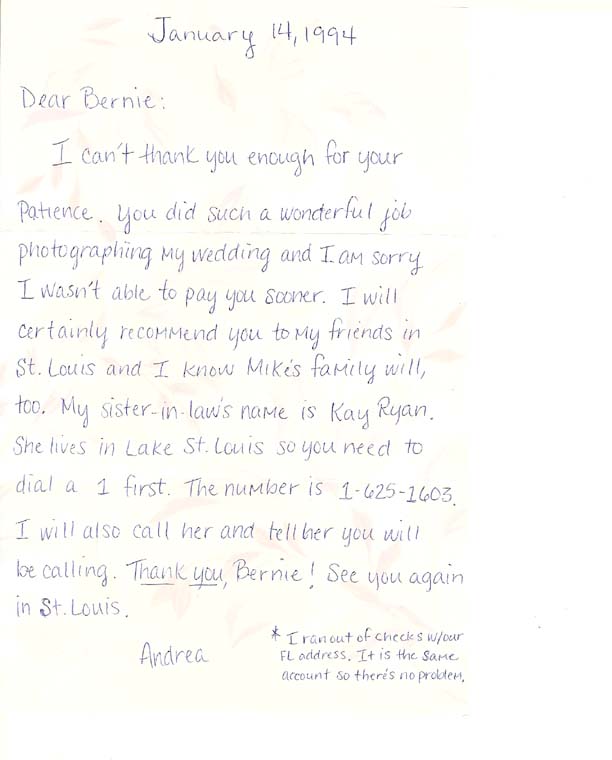 January 14, 1994
Dear Bernie:
I can't thank you enough for your
patience. You did such a wonderful job
photographing my wedding and I am sorry
I wasn't able to pay you sooner. I will
certainly recommend you to my friends in
St. Louis and I know Mike's family will,
too. My sister-in-law's name is Kay Ryan.
She lives in Lake St. Louis so you need to
dial a 1 first. The number is 1-625-1603.
I will also call her and tell her you will
be calling. Thank you, Bernie! See you again
in St. Louis.
Andrea
* I ran out of checks w/our
FL address. It is the same
account so there's no problem.